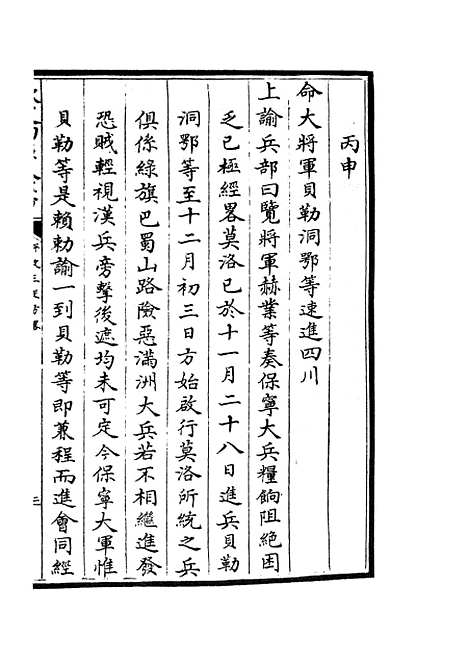 丙申
命大將軍貝勒洞鄂等速進四川
上諭兵部曰覽將軍赫業等奏保寧大兵糧餉阻絶困
乏已極經畧莫洛已於十一月二十八日進兵貝勒
洞鄂等至十二月初三日方始啟行莫洛所統之兵
俱係綠旗巴蜀山路險惡滿洲大兵若不相繼進發
恐賊輕視漢兵旁擊後遮均未可定今保寧大軍惟
貝勒等是賴勅諭一到貝勒等即兼程而進會同經
三